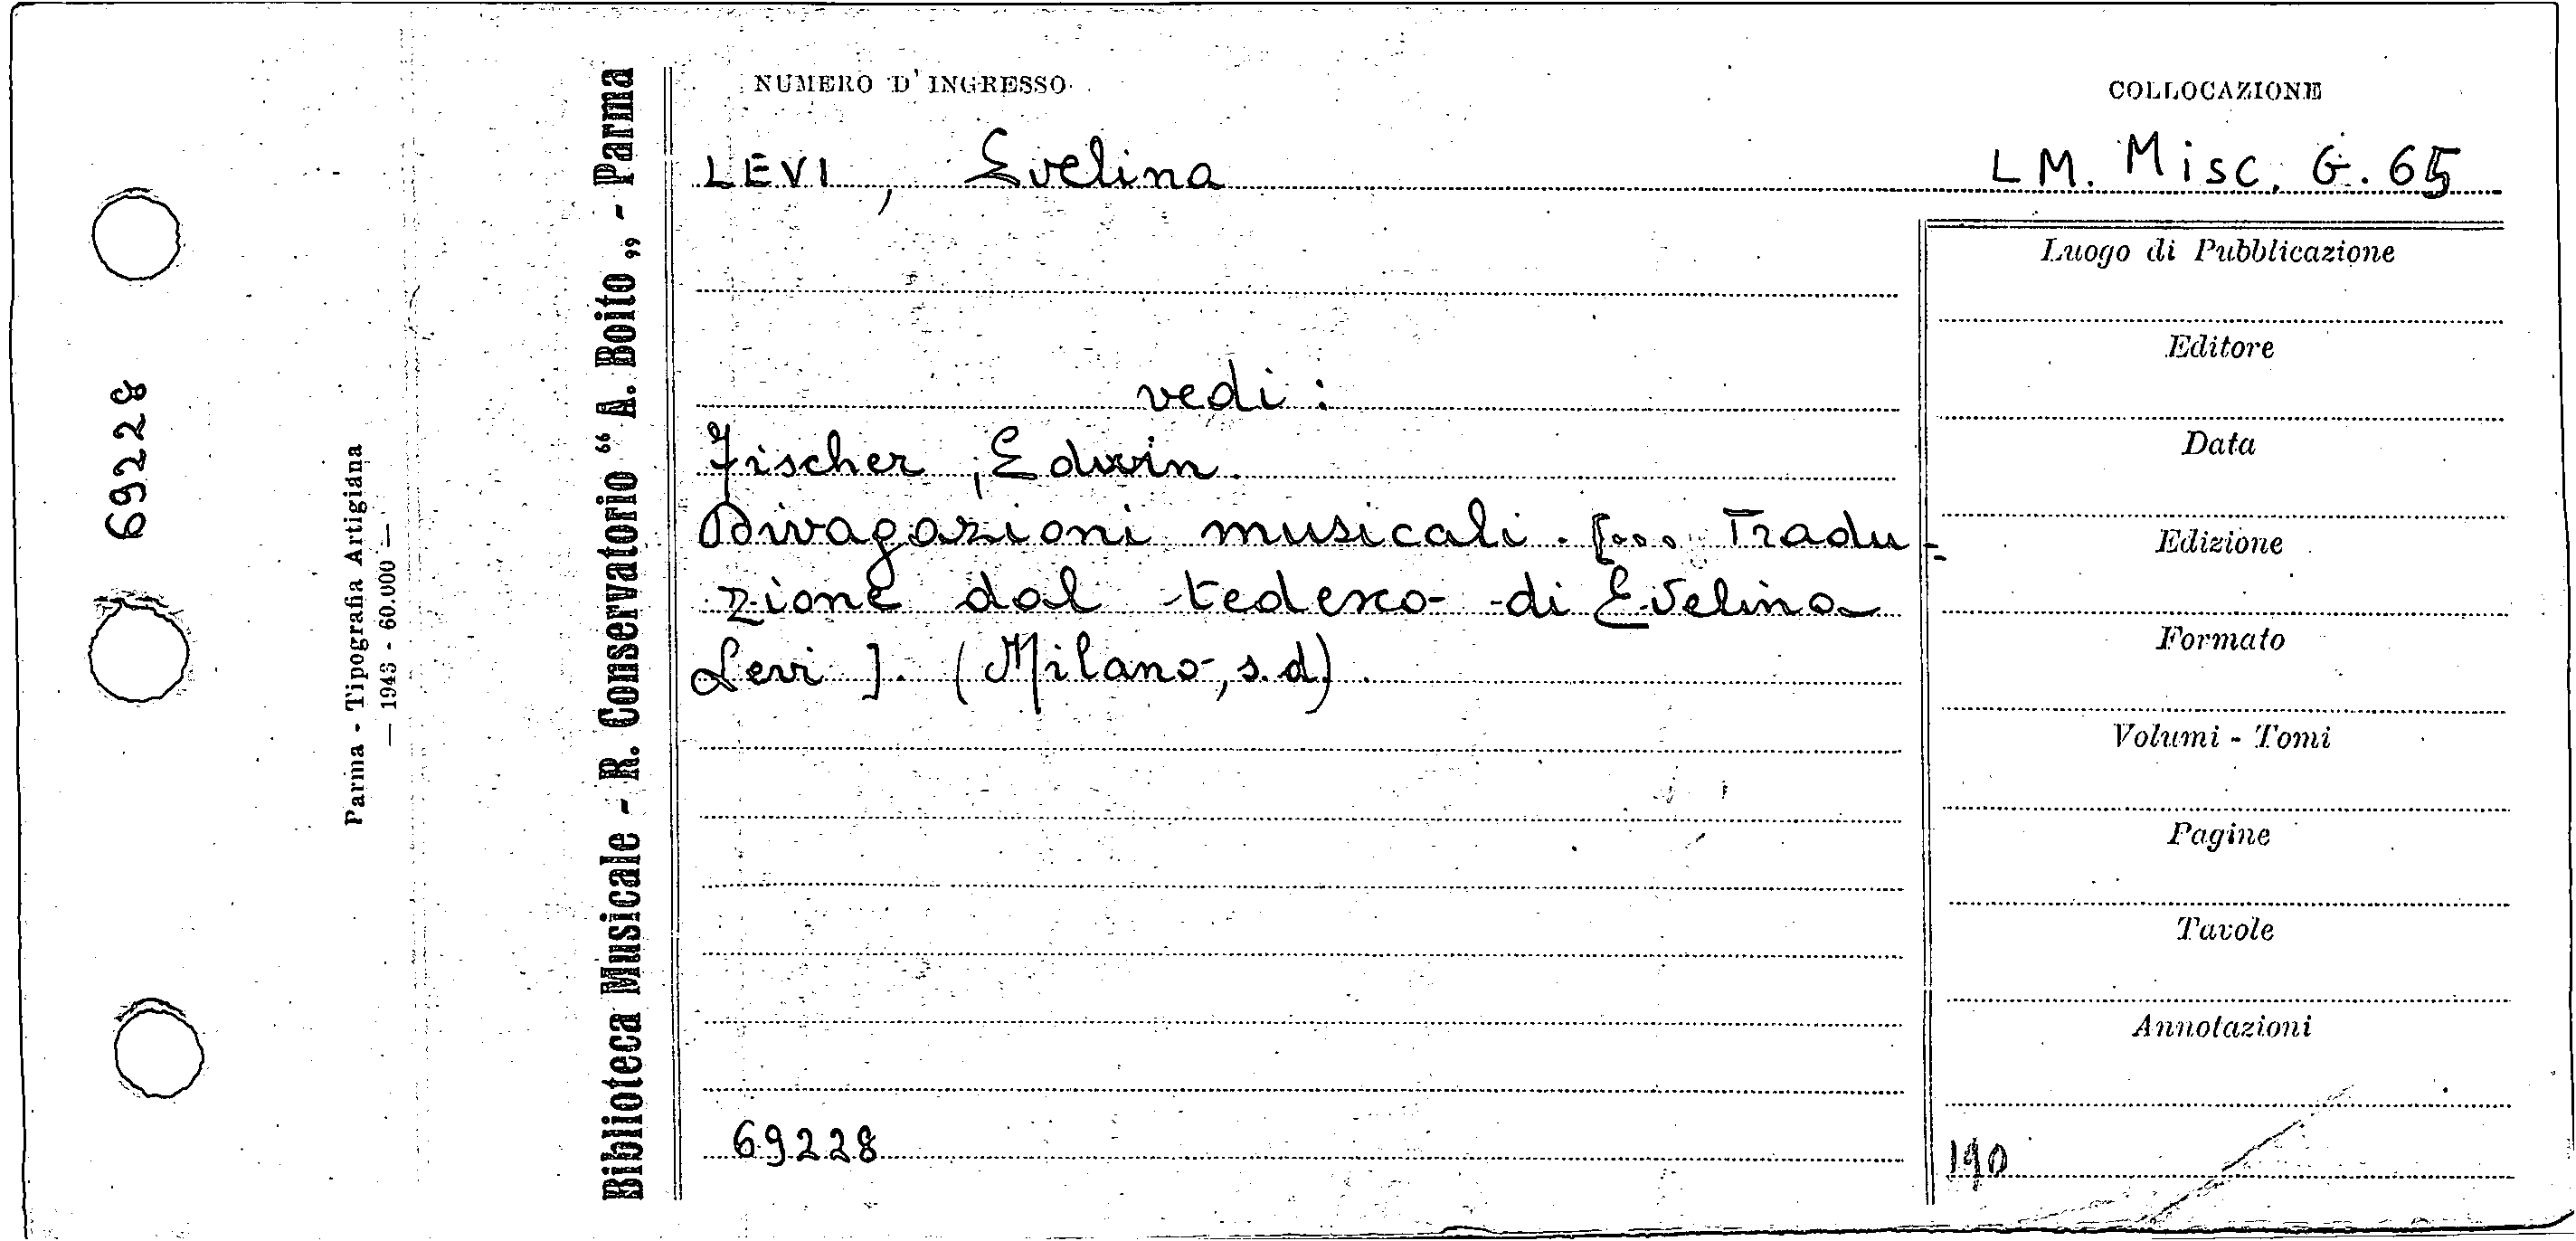 NUMERO D'INGRESSO
COLLOCAZIONE
LEVI, Evelina
LM. Misc. G. 65
vedi:
Fischer, Edwin.
Divagazioni musicali. [... Tradu-
zione dal tedesco di Evelina
Levi]. (Milano, s.d).
69228
Luogo di Pubblicazione
Editore
Data
Edizione
Formato
Volumi - Tomi
Pagine
Tavole
Annotazioni
190
Biblioteca Musicale - R. Conservatorio “ A. Boito „ - Parma
Parma - Tipografia Artigiana
— 1943 - 60.000 —
69228